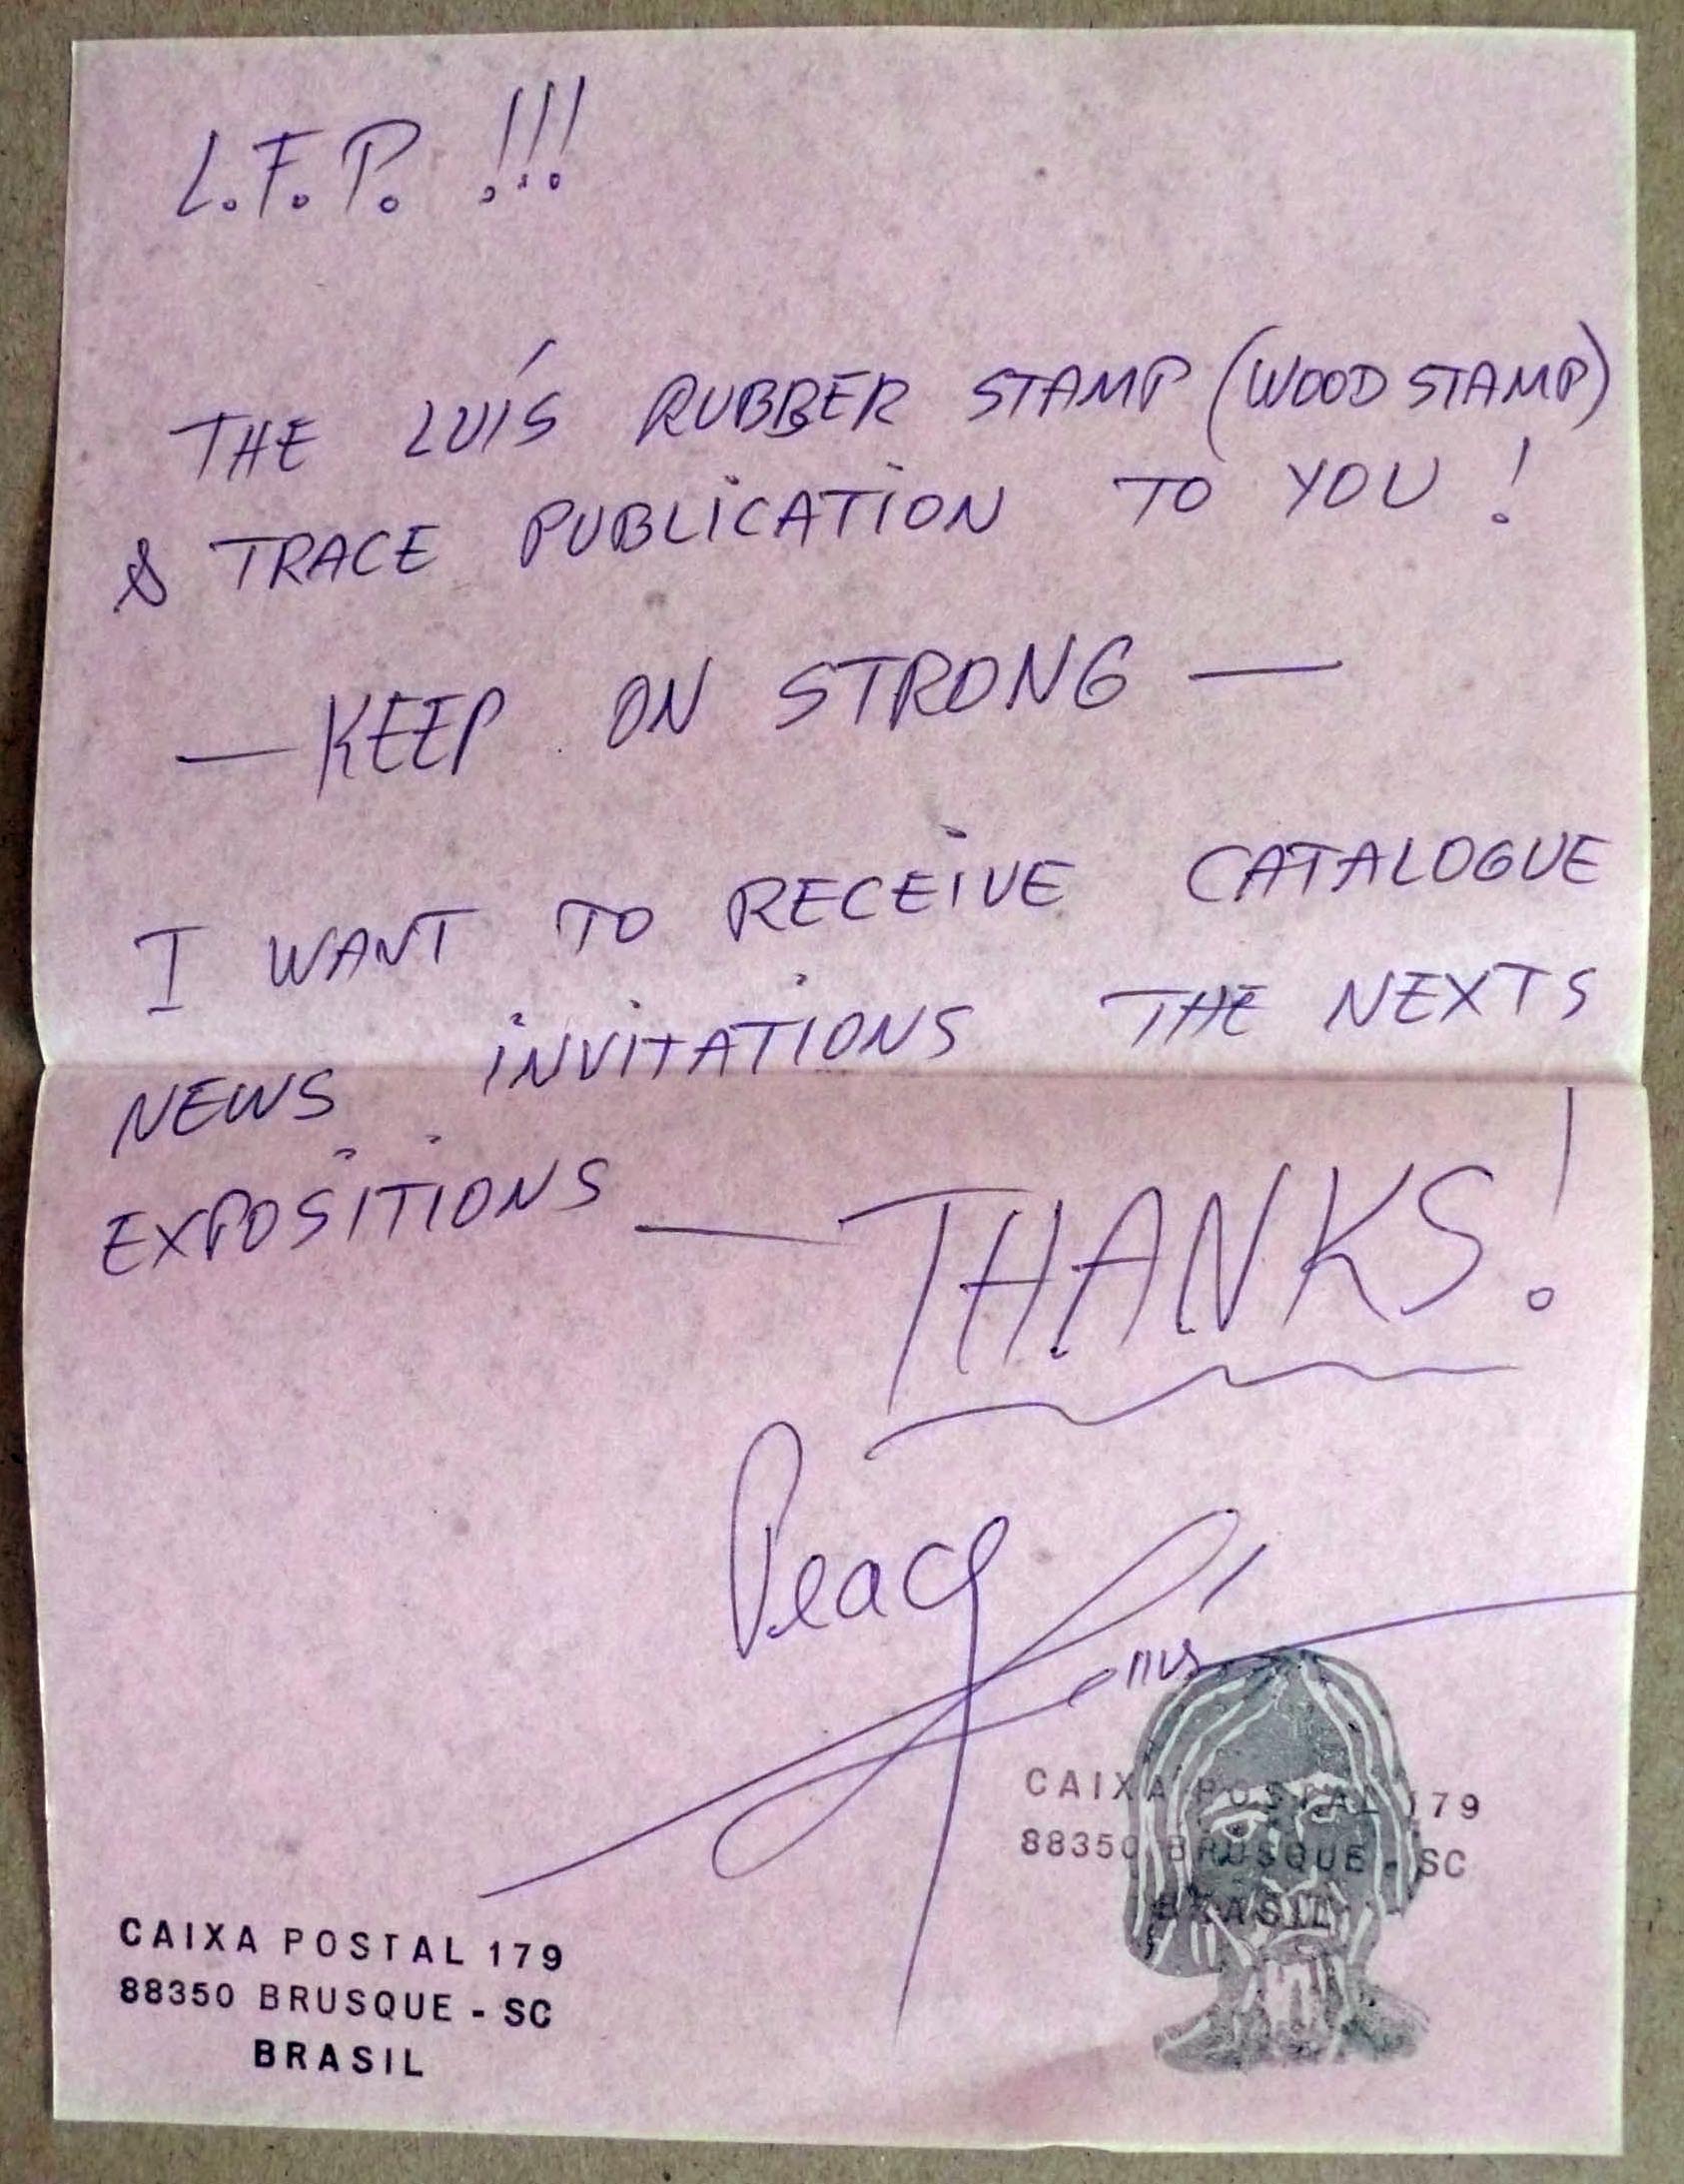 L.F.P. !!!
THE LUÍS RUBBER STAMP (WOOD STAMP)
& TRACE PUBLICATION TO YOU !
— KEEP ON STRONG —
I WANT TO RECEIVE CATALOGUE
NEWS INVITATIONS THE NEXTS
EXPOSITIONS — THANKS!
Peace
CAIXA POSTAL 179
88350 BRUSQUE - SC
BRASIL
CAIXA POSTAL 179
88350 BRUSQUE - SC
BRASIL